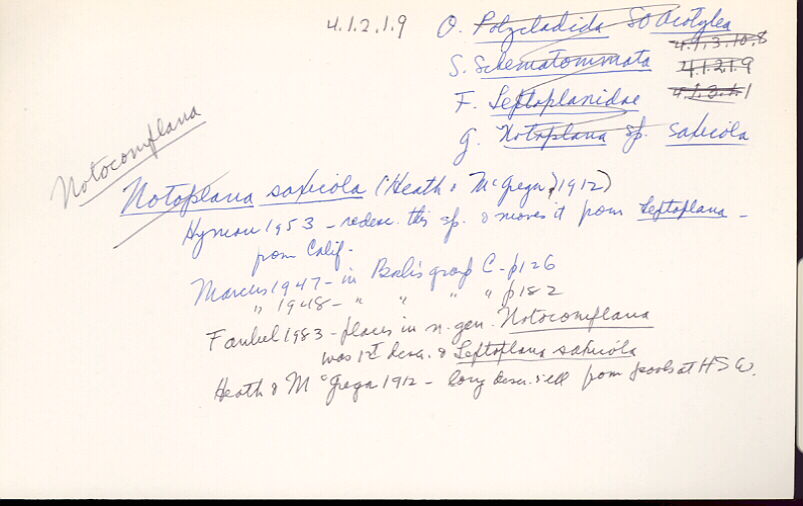 4.1.2.1.9 O. Polycladida SO Acotylea
4.1.3.10.8
S. Schematommata 4.1.2.1.9
F. Leptoplanidae 4.1.3.1.1
G. Notoplana sp. saxicola
Notocomplana
Notoplana saxicola (Heath & McGregor, 1912)
Hyman 1953 - redesc. this sp. & moves it from Leptoplana -
from Calif.
Marcus 1947 - in Bock's group C - p126
" 1948 - " " " " p182
Faubel 1983 - places in n. gen. Notocomplana
was 1st descr. & Leptoplana saxicola
Heath & McGregor 1912 - long descr. & ill from pools at HSW.